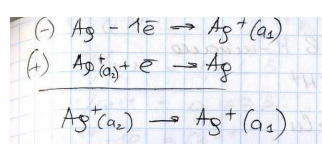 (-) Ag - 1ē → Ag⁺(a₁)
(+) Ag⁺(a₂) + ē → Ag
Ag⁺(a₂) → Ag⁺(a₁)